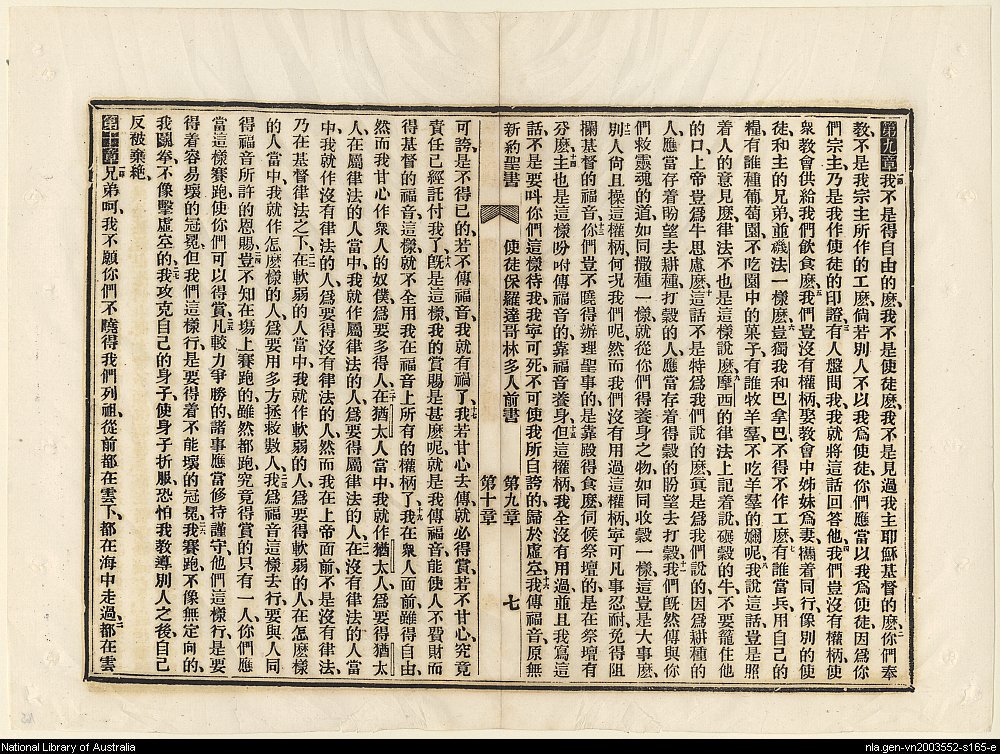 第九章一節我不是得自由的麽、我不是使徒麽、我不是見過我主耶穌基督的麽、你們奉
教、不是我宗主所作的工麽、二倘若別人不以我為使徒、你們應當以我爲使徒、因爲你
們宗主、乃是我作使徒的印證、三有人盤問我、我就將這話回答他、四我們豈沒有權柄使
衆教會供給我們飲食麽、五我們豈沒有權柄娶教會中姊妹爲妻、攜着同行、像別的使
徒、和主的兄弟、並磯法一樣麽、六豈獨我和巴拿巴、不得不作工麽、七有誰當兵、用自己的
糧、有誰種葡萄園、不吃園中的菓子、有誰牧羊羣、不吃羊羣的嬭呢、八我說這話、豈是照
着人的意見麽、律法不也是這樣說麽、九摩西的律法上記着說、碾穀的牛、不要籠住他
的口、上帝豈爲牛思慮麽、十這話不是特爲我們說的麽、眞是爲我們說的、因爲耕種的
人、應當存着盼望去耕種、打穀的人、應當存着得穀的盼望去打穀、十一我們旣然傳與你
們救靈魂的道、如同撒種一樣、就從你們得養身之物、如同收穀一樣、這豈是大事麽、
十二別人尙且操這權柄、何況我們呢、然而我們沒有用過這權柄、寧可凡事忍耐、免得阻
攔基督的福音、十三你們豈不曉得辦理聖事的、是靠殿得食麽、伺候祭壇的、是在祭壇有
分麽、十四主也是這樣吩咐傳福音的、靠福音養身、十五但這權柄、我全沒有用過、並且我寫這
話、不是要叫你們這樣待我、我寧可死、不可使我所自誇的、歸於虛空、十六我傳福音、原無
新約聖書 使徒保羅達哥林多人前書 第九章 第十章 七
可誇、是不得已的、若不傳福音、我就有禍了、十七我若甘心去傳、就必得賞、若不甘心、究竟
責任已經託付我了、十八旣是這樣、我的賞賜是甚麽呢、就是我傳福音、能使人不費財而
得基督的福音、這樣、就不全用我在福音上所有的權柄了、十九我在衆人面前雖得自由、
然而我甘心作衆人的奴僕、爲要多得人、二十在猶太人當中、我就作猶太人、爲要得猶太
人、在屬律法的人當中、我就作屬律法的人、爲要得屬律法的人、二一在沒有律法的人當
中、我就作沒有律法的人、爲要得沒有律法的人、然而我在上帝面前、不是沒有律法、
乃在基督律法之下、二二在軟弱的人當中、我就作軟弱的人、爲要得軟弱的人、在怎麽樣
的人當中、我就作怎麽樣的人、爲要用多方拯救數人、二三我爲福音這樣去行、要與人同
得福音所許的恩賜、二四豈不知在場上賽跑的、雖然都跑、究竟得賞的只有一人、你們應
當這樣賽跑、使你們可以得賞、二五凡較力爭勝的、諸事應當修持謹守、他們這樣行、是要
得着容易壞的冠冕、但我們這樣行、是要得着不能壞的冠冕、二六我賽跑、不像無定向的、
我鬬拳、不像擊虛空的、二七我攻克自己的身子、使身子折服、恐怕我教導別人之後、自己
反被棄絶、
第十章一節兄弟呵、我不願你們不曉得我們列祖、從前都在雲下、都在海中走過、二都在雲
National Library of Australia
nla.gen-vn2003552-s165-e